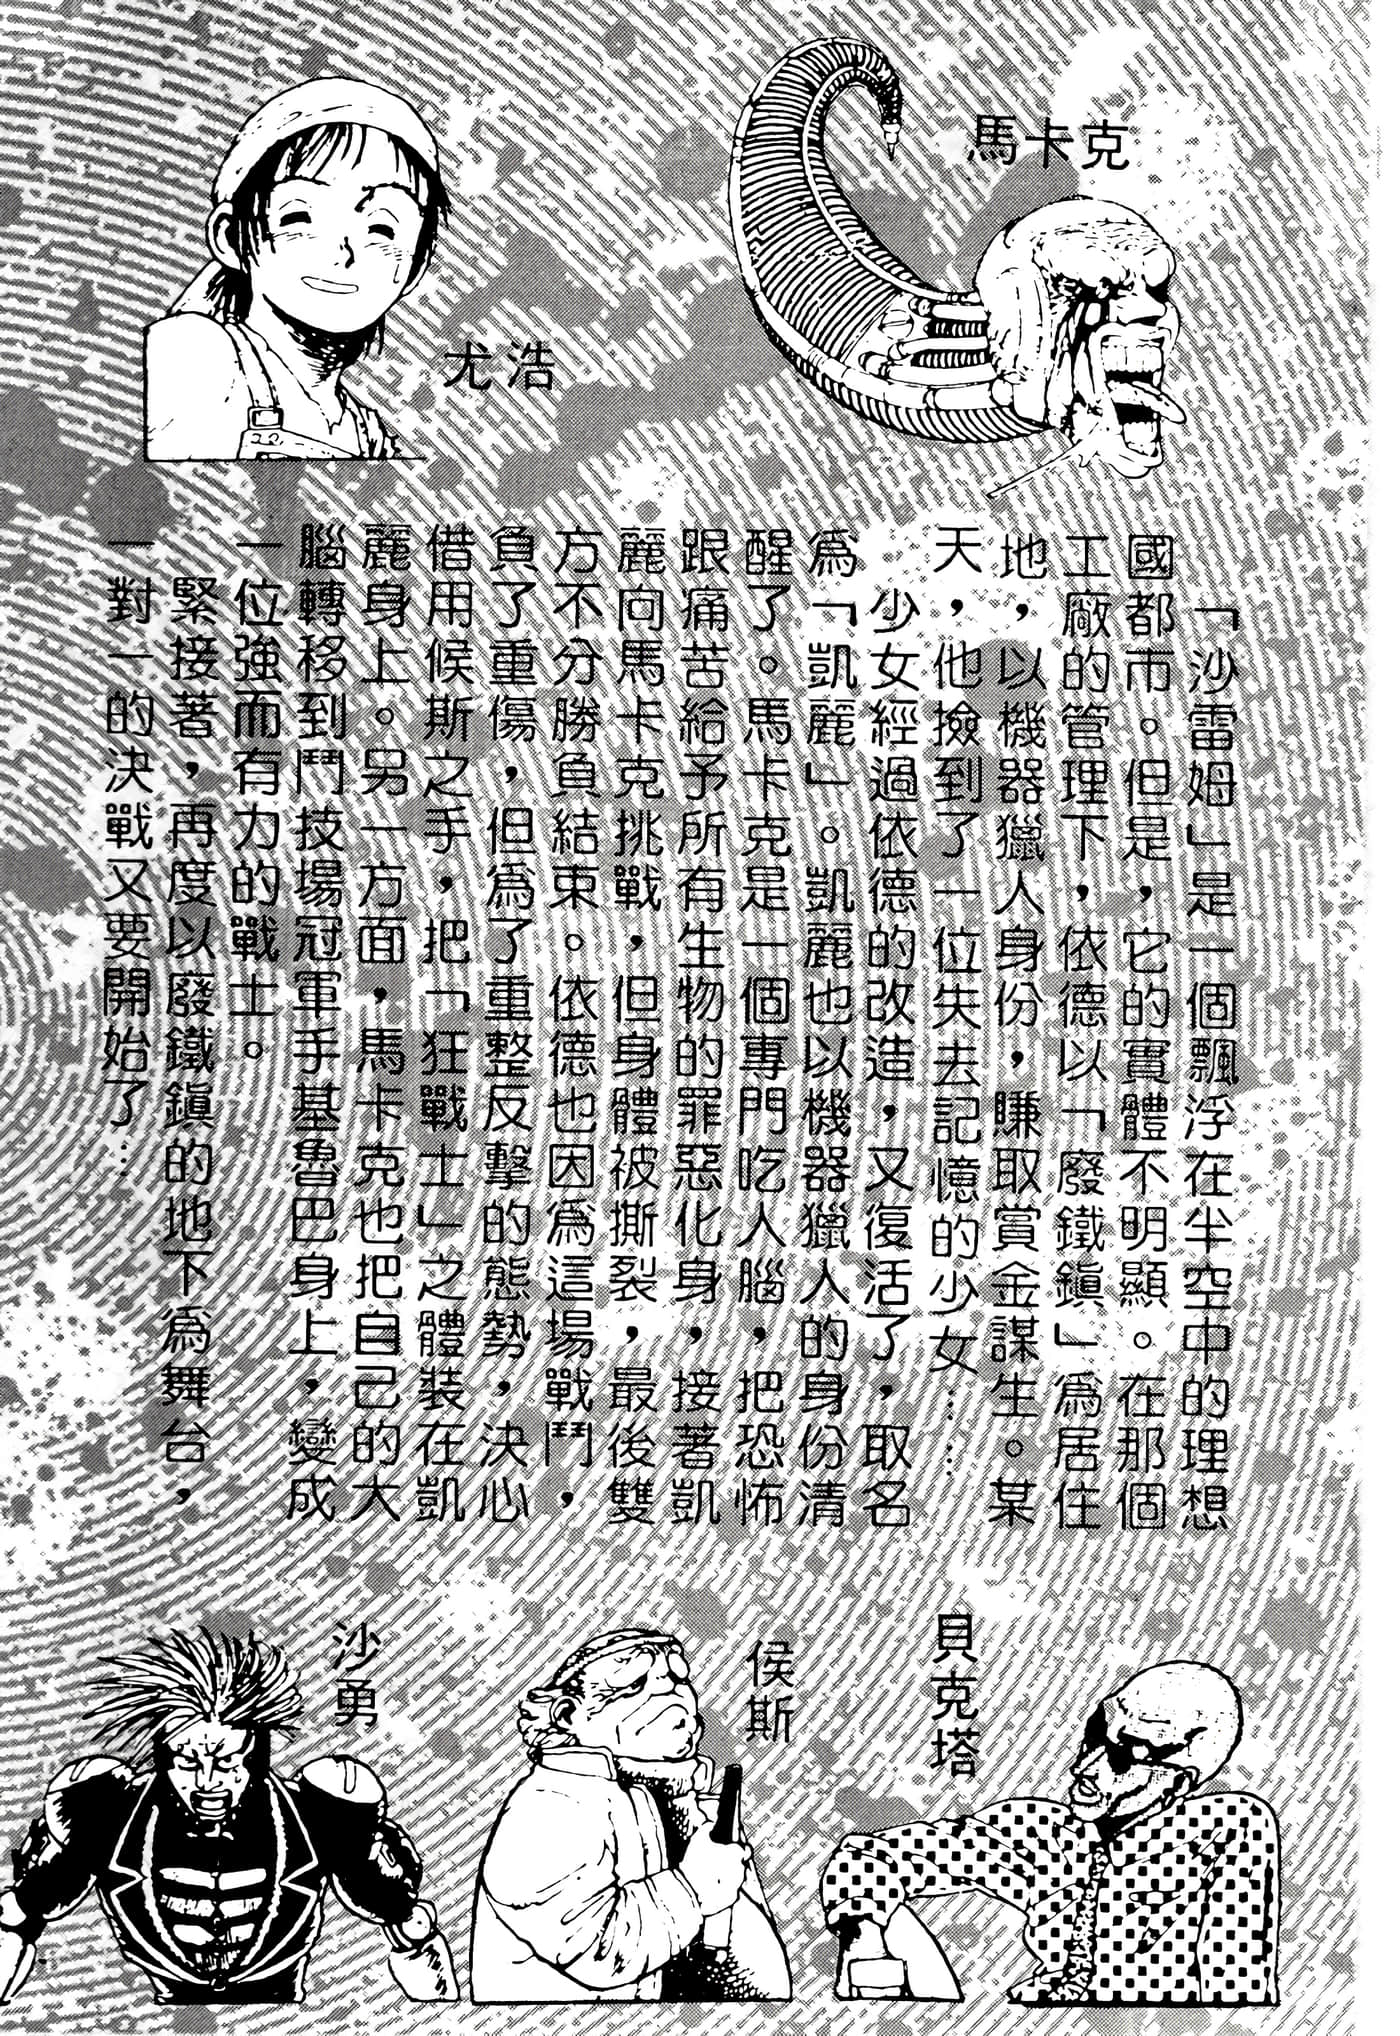 馬卡克
尤浩
「沙雷姆」是一個飄浮在半空中的理想
國都市。但是，它的實體不明顯。在那個
工廠的管理下，依德以「廢鐵鎮」爲居住
地，以機器獵人身份，賺取賞金謀生。某
天，他撿到了一位失去記憶的少女……
少女經過依德的改造，又復活了，取名
爲「凱麗」。凱麗也以機器獵人的身份清
醒了。馬卡克是一個專門吃人腦，把恐怖
跟痛苦給予所有生物的罪惡化身，接著凱
麗向馬卡克挑戰，但身體被撕裂，最後雙
方不分勝負結束。依德也因爲這場戰鬥，
負了重傷，但爲了重整反擊的態勢，決心
借用候斯之手，把「狂戰士」之體裝在凱
麗身上。另一方面，馬卡克也把自己的大
腦轉移到鬥技場冠軍手基魯巴身上，變成
一位強而有力的戰士。
緊接著，再度以廢鐵鎮的地下爲舞台，
一對一的決戰又要開始了…
貝克塔
侯斯
沙勇